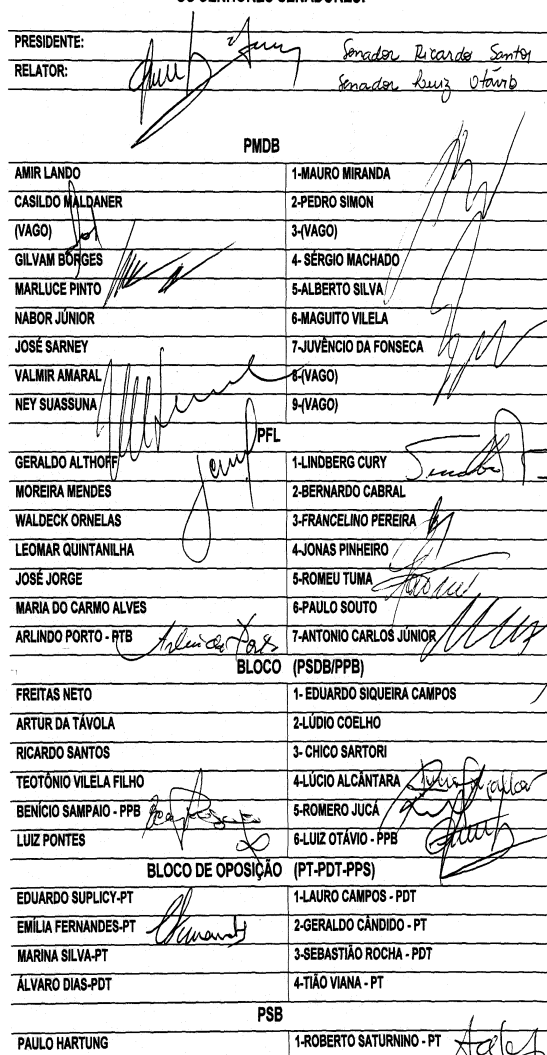 OS SENHORES SENADORES:
PRESIDENTE: Senador Ricardo Santos
RELATOR: Senador Luiz Otávio
PMDB
AMIR LANDO 1-MAURO MIRANDA
CASILDO MALDANER 2-PEDRO SIMON
(VAGO) 3-(VAGO)
GILVAM BORGES 4- SÉRGIO MACHADO
MARLUCE PINTO 5-ALBERTO SILVA
NABOR JÚNIOR 6-MAGUITO VILELA
JOSÉ SARNEY 7-JUVÊNCIO DA FONSECA
VALMIR AMARAL 8-(VAGO)
NEY SUASSUNA 9-(VAGO)
PFL
GERALDO ALTHOFF 1-LINDBERG CURY
MOREIRA MENDES 2-BERNARDO CABRAL
WALDECK ORNELAS 3-FRANCELINO PEREIRA
LEOMAR QUINTANILHA 4-JONAS PINHEIRO
JOSÉ JORGE 5-ROMEU TUMA
MARIA DO CARMO ALVES 6-PAULO SOUTO
ARLINDO PORTO - PTB Arlindo Porto 7-ANTONIO CARLOS JÚNIOR
BLOCO (PSDB/PPB)
FREITAS NETO 1- EDUARDO SIQUEIRA CAMPOS
ARTUR DA TÁVOLA 2-LÚDIO COELHO
RICARDO SANTOS 3- CHICO SARTORI
TEOTÔNIO VILELA FILHO 4-LÚCIO ALCÂNTARA
BENÍCIO SAMPAIO - PPB 5-ROMERO JUCÁ
LUIZ PONTES 6-LUIZ OTÁVIO - PPB
BLOCO DE OPOSIÇÃO (PT-PDT-PPS)
EDUARDO SUPLICY-PT 1-LAURO CAMPOS - PDT
EMÍLIA FERNANDES-PT 2-GERALDO CÂNDIDO - PT
MARINA SILVA-PT 3-SEBASTIÃO ROCHA - PDT
ÁLVARO DIAS-PDT 4-TIÃO VIANA - PT
PSB
PAULO HARTUNG 1-ROBERTO SATURNINO - PT